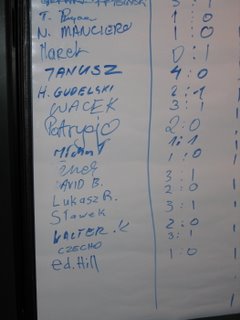 T. Ryan 1:0
N. MANCIERO 1:0
Marek 0:1
JANUSZ 4:0
H. GUDELSKI 2:1
WACEK 3:1
Patrycja 2:0
Michał 1:1
1:0
3:1
DAVID B. 2:0
Lukasz R. 3:1
Sławek 2:0
WALTER .K 3:1
CZECHO 1:0
ed. Hill